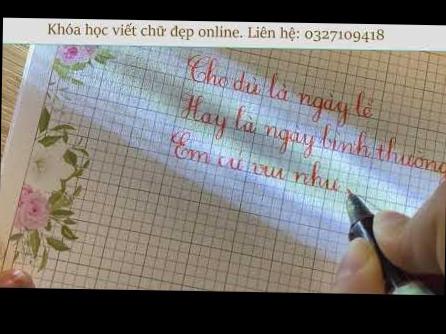 Khóa học viết chữ đẹp online. Liên hệ: 0327109418
Cho dù là ngày lễ
Hay là ngày bình thường
Em cứ vui như